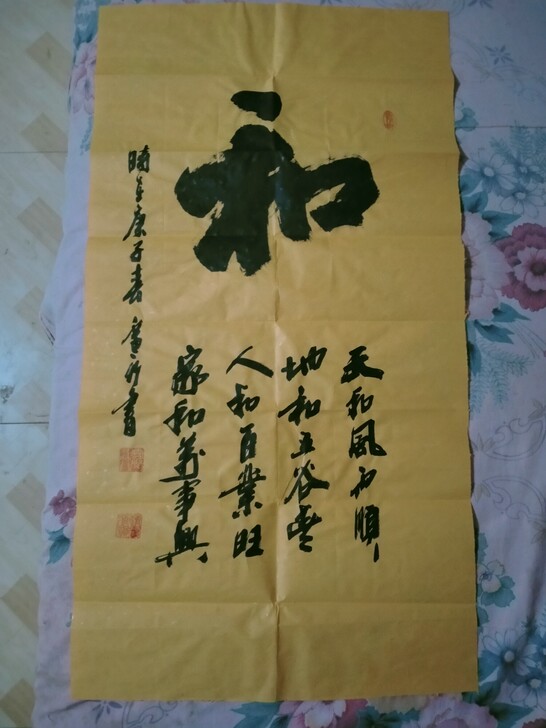 和
天和風雨順
地和五谷豊
人和百業旺
家和萬事興
時在庚子春